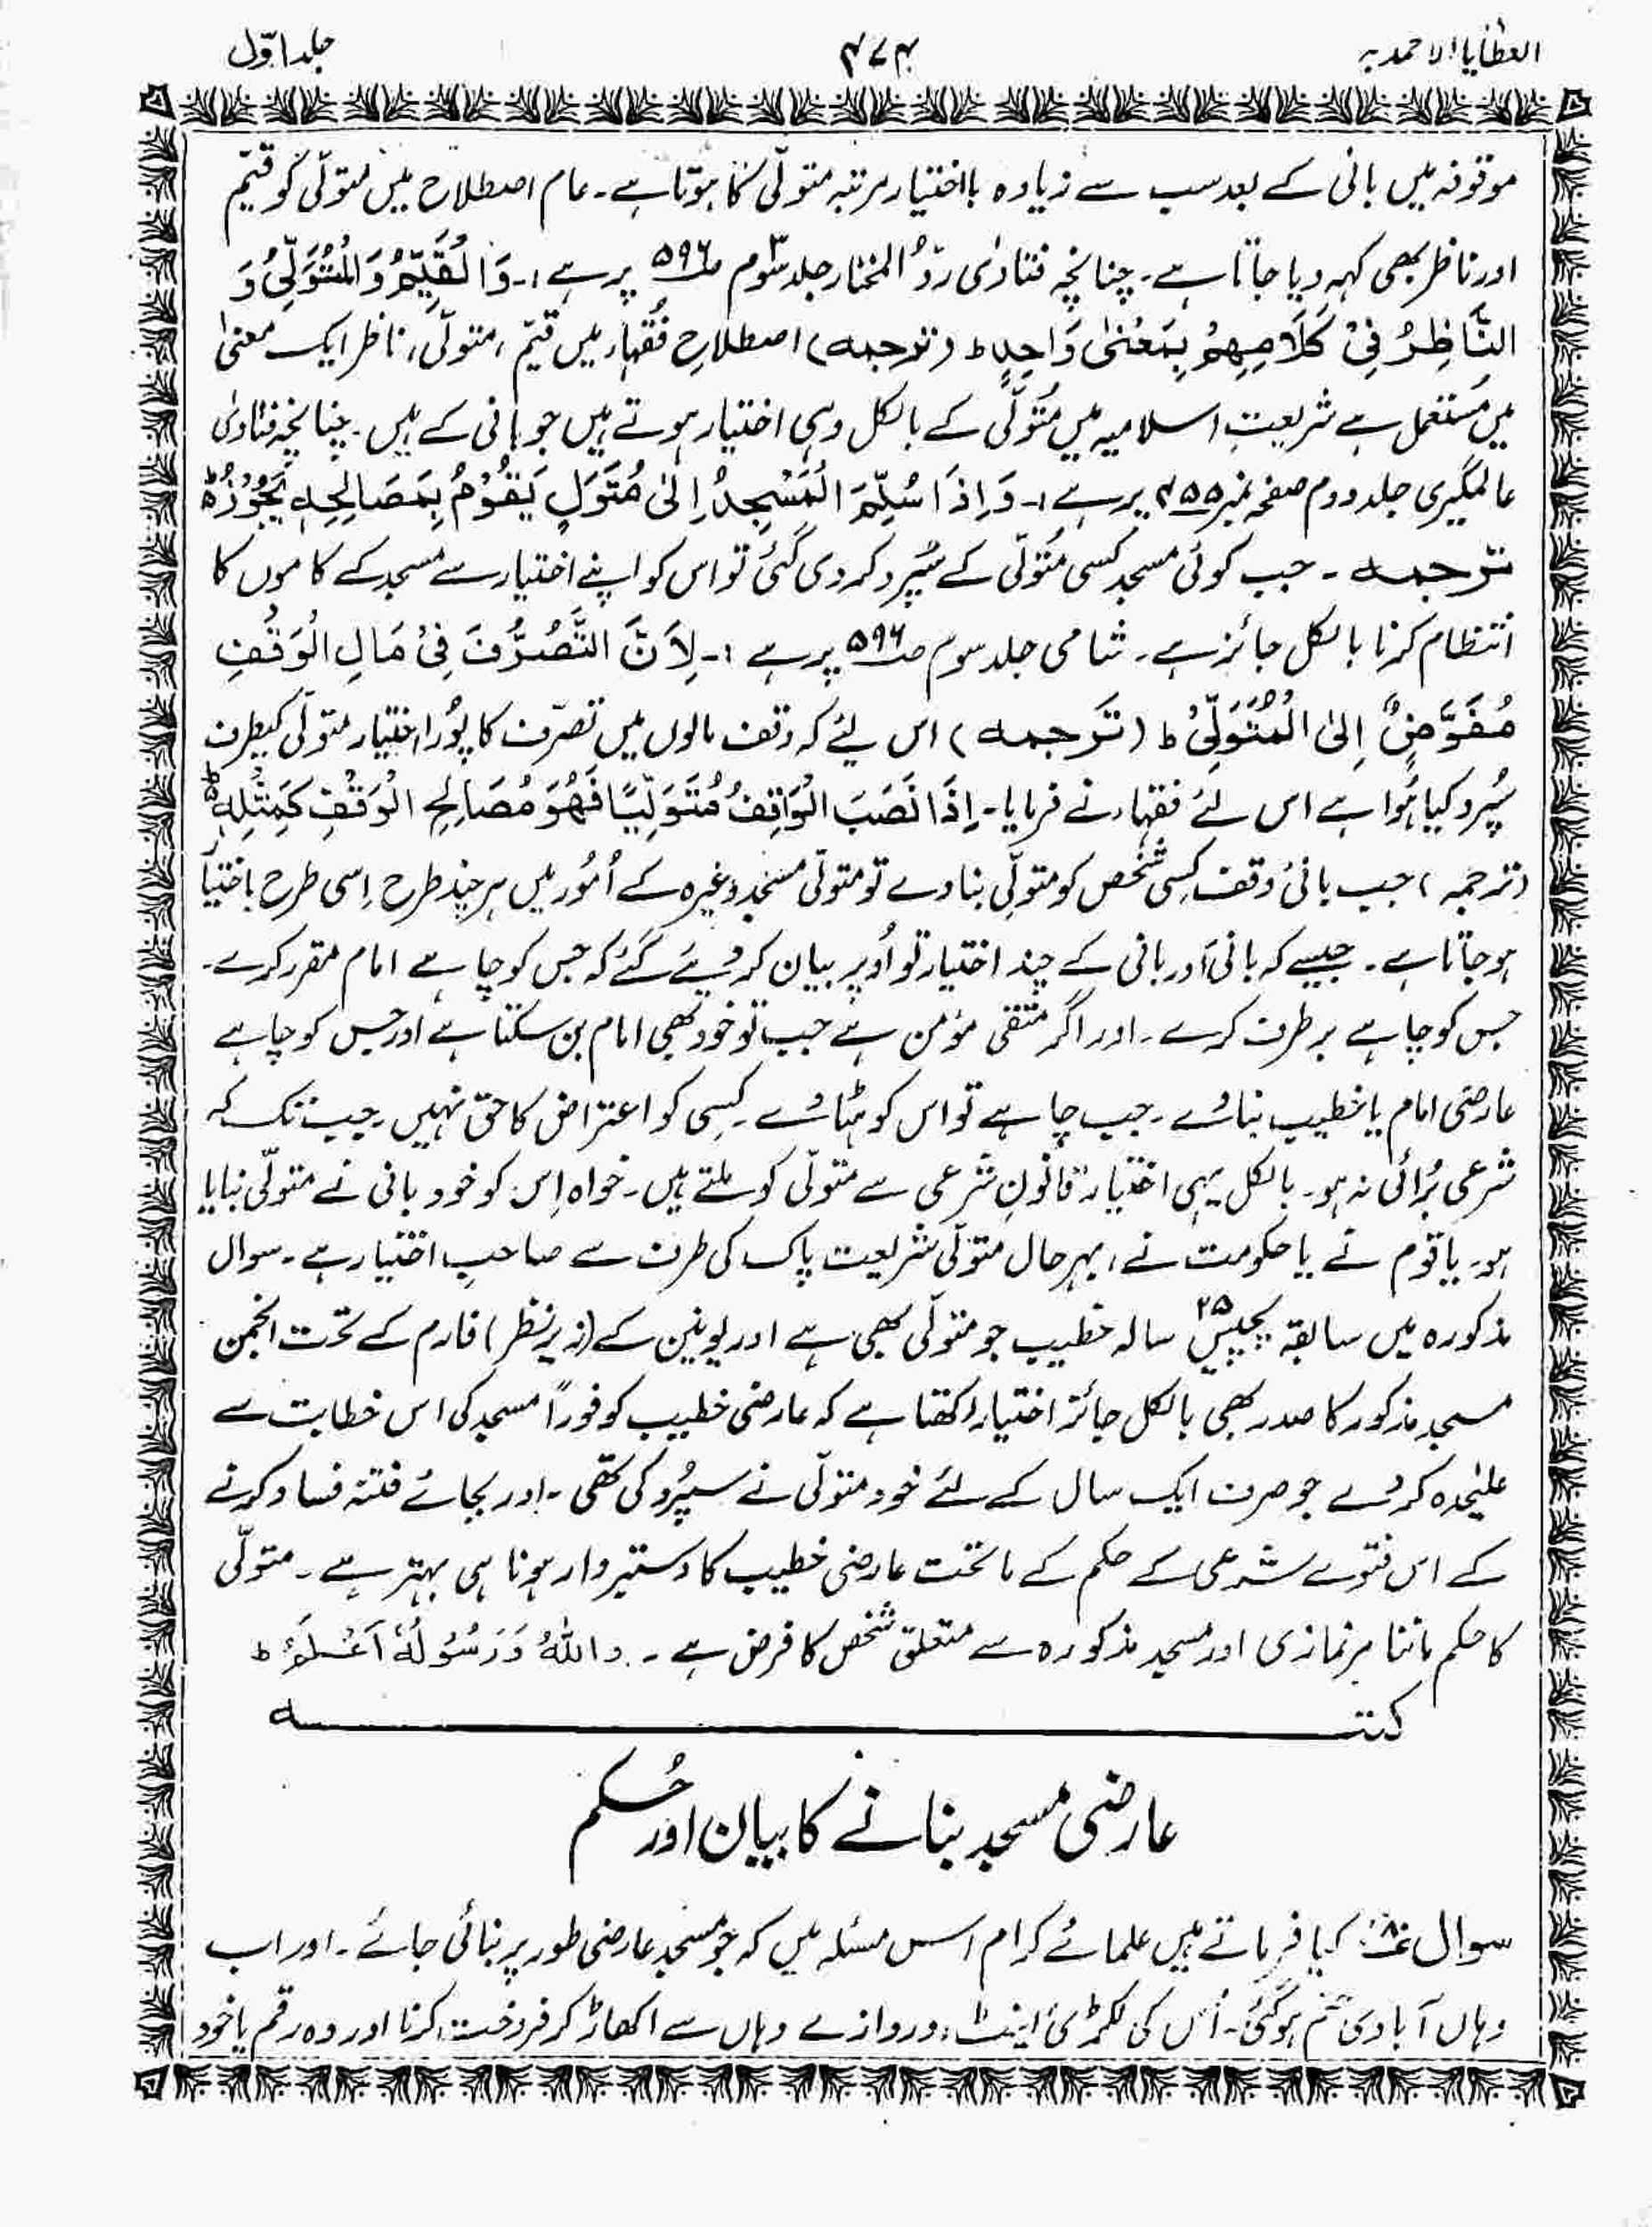 العطایا الاحمدیہ
۴۷۴
جلد اوّل
موقوفہ میں بانی کے بعد سب سے زیادہ بااختیار مرتبہ متولّی کا ہوتا ہے۔ عام اصطلاح میں متولّی کو قیّم
اور ناظر بھی کہہ دیا جاتا ہے۔ چنانچہ فتاوٰی ردُّ المختار جلد سوم ص۵۹۶ پر ہے :۔ وَالْقَیِّمُ وَالْمُتَوَلِّیُ وَ
النَّاظِرُ فِیْ کَلَامِھِمْ بِمَعْنٰی وَاحِدٍ ط (ترجمہ) اصطلاحِ فُقہاء میں قیّم، متولّی، ناظر ایک معنیٰ
میں مُستعمل ہے شریعتِ اسلامیہ میں مُتَولّی کے بالکل وہی اختیار ہوتے ہیں جو بانی کے ہیں۔ چنانچہ فتاویٰ
عالمگیری جلد دوم صفحہ نمبر ۴۵۵ پر ہے :۔ وَاِذَا سُلِّمَ الْمَسْجِدُ اِلٰی مُتَوَلٍ یَقُوْمُ بِمَصَالِحِہٖ یَجُوْزُ ط
ترجمہ ۔ جب کوئی مسجد کسی مُتولّی کے سُپرد کر دی گئی تو اس کو اپنے اختیار سے مسجد کے کاموں کا
انتظام کرنا بالکل جائز ہے۔ شامی جلد سوم ص۵۹۶ پر ہے :۔ لِاَنَّ التَّصَرُّفَ فِیْ مَالِ الْوَقْفِ
مُفَوَّضٌ اِلیٰ الْمُتَوَلِّیْ ط (ترجمہ) اس لیئے کہ وقف مالوں میں تصرّف کا پُورا اختیار متولّی کیطرف
سُپرد کیا ہُوا ہے اس لئے فقہاء نے فرمایا۔ اِذَا نَصَبَ الْوَاقِفُ مُتَوَلِّیًا فَھُوَ مُصَالِحِ الْوَقْفِ کَمِثْلِہٖ ط
(ترجمہ) جب بانیٔ وقف کِسی شخص کو متولّی بنا دے تو متولّی مسجد وغیرہ کے اُمُور میں ہر چند طرح اِسی طرح بااختیار
ہو جاتا ہے ۔ جیسے کہ بانی اَور بانی کے چند اختیار تو اُوپر بیان کر دیئے گئے کہ جس کو چاہے امام مقرر کرے۔
جس کو چاہے برطرف کرے ۔ اور اگر متقی مؤمن ہے جب تو خود بھی امام بن سکتا ہے اور جس کو چاہے
عارضی امام یا خطیب بنا دے ۔ جب چاہے تو اس کو ہٹا دے ۔ کِسی کو اعتراض کا حق نہیں ۔ جب تک کہ
شرعی بُرائی نہ ہو۔ بالکل یہی اختیار قانونِ شرعی سے متولّی کو ملتے ہیں ۔ خواہ اِس کو خود بانی نے متولّی بنایا
ہو۔ یا قوم نے یا حکومت نے، بہر حال متولّی شریعت پاک کی طرف سے صاحبِ اختیار ہے ۔ سوال
مذکورہ میں سابقہ پچیس ۲۵ سالہ خطیب جو متولّی بھی ہے اور یونین کے (زیرِ نظر) فارم کے تحت انجمن
مسجد مذکور کا صدر بھی بالکل جائز اختیار رکھتا ہے کہ عارضی خطیب کو فوراً مسجد کی اس خطابت سے
علیٰحدہ کر دے جو صرف ایک سال کے لئے خود متولّی نے سپُرد کی تھی ۔ اور بجائے فتنہ فساد کرنے
کے اس فتوے شرعی کے حکم کے ماتحت عارضی خطیب کا دستبردار ہونا ہی بہتر ہے ۔ متولّی
کا حکم ماننا ہر نمازی اور مسجد مذکورہ سے متعلق شخص کا فرض ہے ۔ وَاللہُ وَرَسُوْلُہٗ اَعْلَمُ ط
کتبہ
عارضی مسجد بنانے کا بیان اور حُکم
سوال : کیا فرماتے ہیں علمائے کرام اس مسئلہ میں کہ جو مسجد عارضی طور پر بنائی جائے ۔ اور اب
وہاں آبادی ختم ہو گئی۔ اُس کی لکڑی اینٹ، دروازے وہاں سے اکھاڑ کر فروخت کرنا اور وہ رقم یا خود